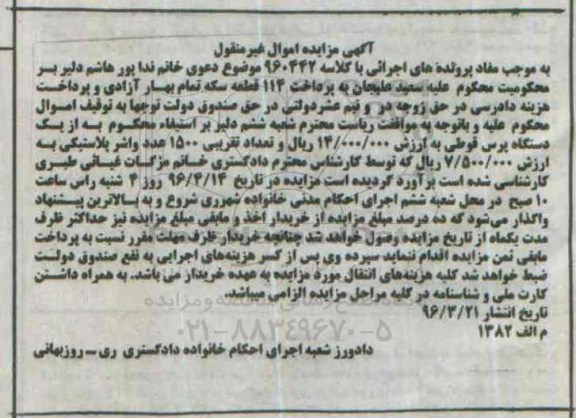 آگهی مزایده اموال غیرمنقول
به موجب مفاد پرونده های اجرائی با کلاسه ۹۶۰۴۴۲ موضوع دعوی خانم ندا پور هاشم دلیر بر
محکومیت محکوم علیه سعید علیجان به پرداخت ۱۱۴ قطعه سکه تمام بهار آزادی و پرداخت
هزینه دادرسی در حق زوجه در و نیم عشر دولتی در حق صندوق دولت توجها به توقیف اموال
محکوم علیه و باتوجه به موافقت ریاست محترم شعبه ششم دلیر بر استیفاء محکوم به از یک
دستگاه پرس قوطی به ارزش ۱۴/۰۰۰/۰۰۰ ریال و تعداد تقریبی ۱۵۰۰ عدد واشر پلاستیکی به
ارزش ۷/۵۰۰/۰۰۰ ریال که توسط کارشناس محترم دادگستری خانم مژگان غیاثی طبری
کارشناسی شده است برآورد گردیده است مزایده در تاریخ ۹۶/۴/۱۴ روز ۴ شنبه راس ساعت
۱۰ صبح در محل شعبه ششم اجرای احکام مدنی خانواده شهرری شروع و به بالاترین پیشنهاد
واگذار می‌شود که ده درصد مبلغ مزایده از خریدار اخذ و مابقی مبلغ مزایده نیز حداکثر ظرف
مدت یکماه از تاریخ مزایده وصول خواهد شد چنانچه خریدار ظرف مهلت مقرر نسبت به پرداخت
مابقی ثمن مزایده اقدام ننماید سپرده وی پس از کسر هزینه‌های اجرایی به نفع صندوق دولت
ضبط خواهد شد کلیه هزینه‌های انتقال مورد مزایده به عهده خریدار می باشد. به همراه داشتن
کارت ملی و شناسنامه در کلیه مراحل مزایده الزامی میباشد.
تاریخ انتشار ۹۶/۳/۲۱
۰۲۱-۸۸۳۴۹۶۷۰-۵
م الف ۱۳۸۲
دادورز شعبه اجرای احکام خانواده دادگستری ری ــ روزبهانی